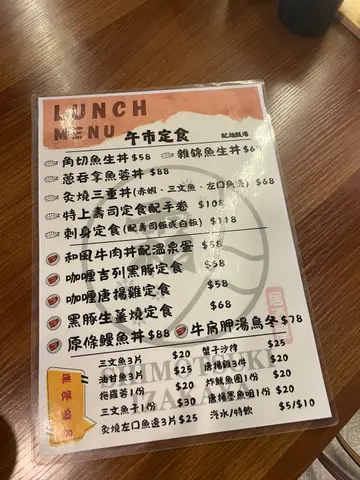 LUNCH
MENU 午市定食 配麵豉湯
角切魚生丼 $58 雜錦魚生丼 $68
蔥吞拿魚蓉丼 $88
炙燒三重丼(赤蝦、三文魚、左口魚邊) $68
特上壽司定食配手卷 $108
刺身定食(配壽司飯或白飯) $118
和風牛肉丼配溫泉蛋 $58
咖喱吉列黑豚定食 $58
咖喱唐揚雞定食 $58
黑豚生薑燒定食 $68
原條鰻魚丼 $88 牛肩胛湯烏冬 $78
無限追加
三文魚3片 $20 蟹子沙律 $25
油甘魚3片 $25 唐揚雞3件 $20
拖羅蓉1份 $20 炸魷魚圈1份 $20
三文魚子1份 $30 唐揚墨魚咀1份 $20
炙燒左口魚邊3片 $25 汽水/特飲 $5/$10
SHIMOTSUKI
IZAKAYA